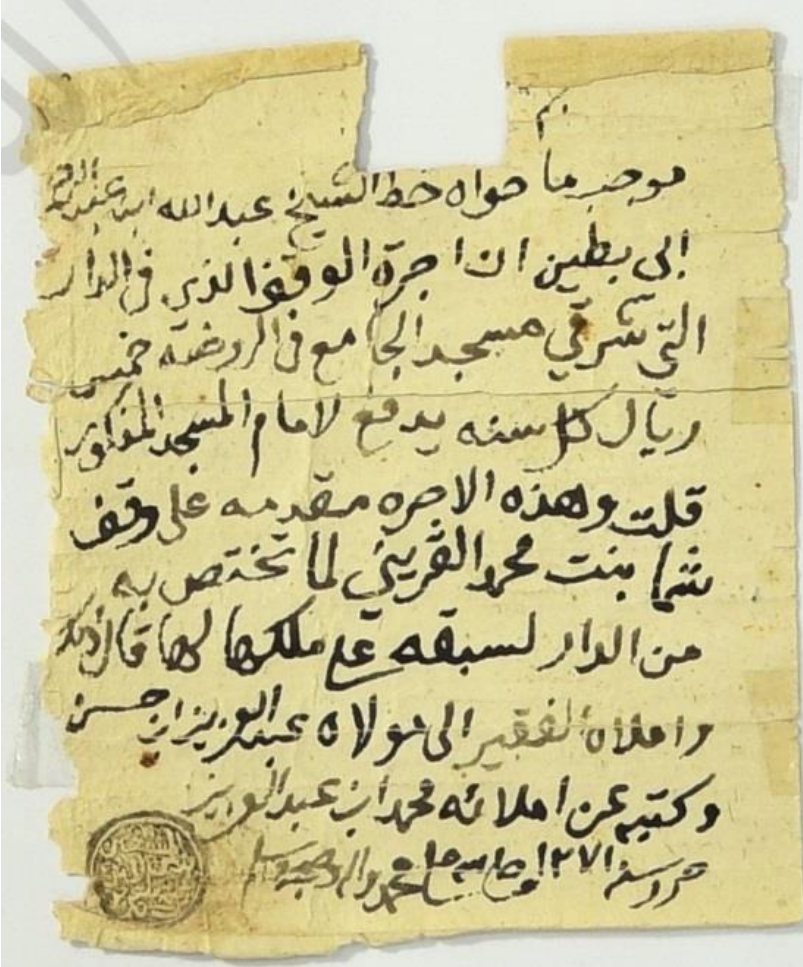 موجب ما حواه خط الشيخ عبدالله ابن عبد الرحمن
ابي بطين ان اجرة الوقف الذي في الدار
التي شرقي مسجد الجامع في الروضه خمس
ريال كل سنه يدفع لامام المسجد المذكور
قلت وهذه الاجره مقدمه على وقف
شما بنت محمد القريني لما تختص به
من الدار لسبقه على ملكها لها قال ذلك
واملاه الفقير الى مولاه عبد العزيز ابن حسن
وكتبه عن املائه محمد ابن عبد العزيز
حرر سنة ١٢٧١ وصلى الله على محمد واله وصحبه وسلم